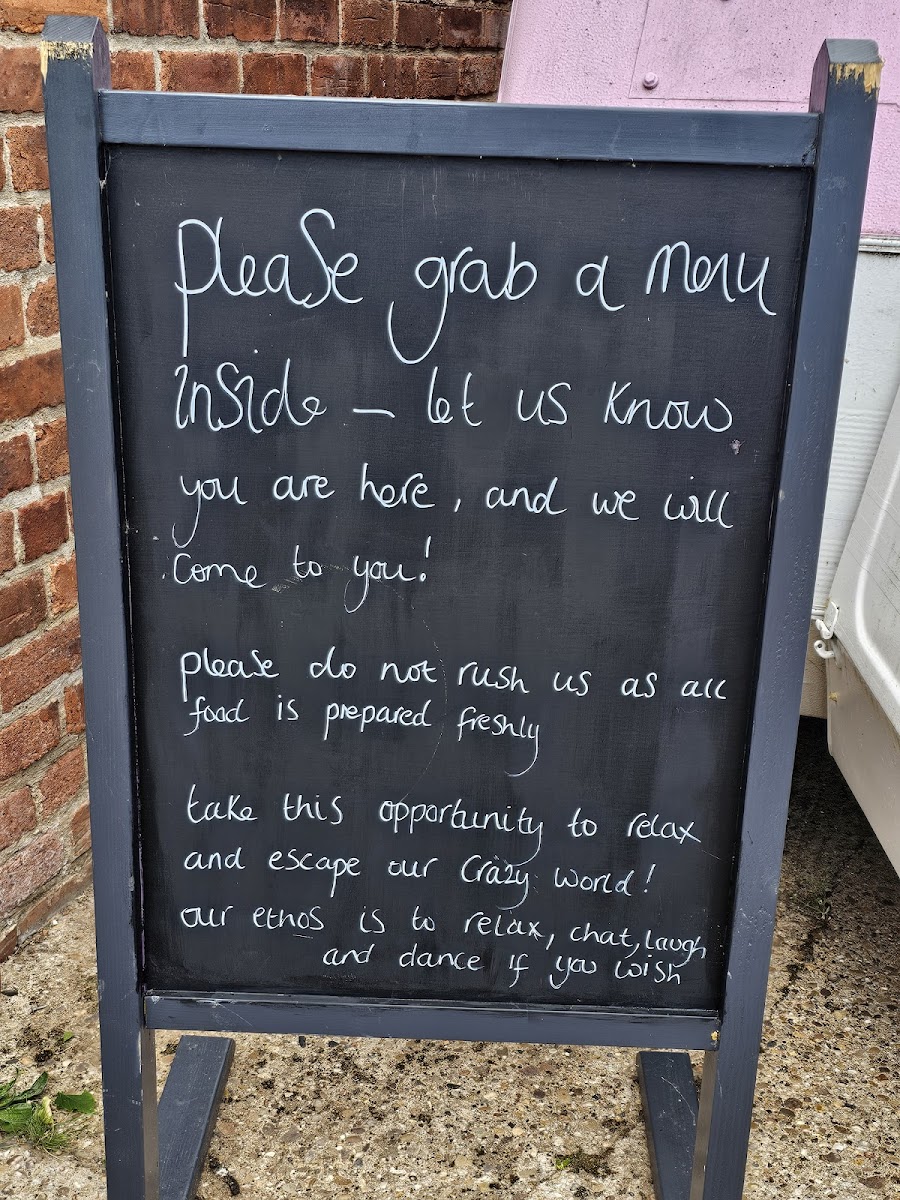 please grab a menu
inside - let us know
you are here, and we will
come to you!
please do not rush us as all
food is prepared freshly
take this opportunity to relax
and escape our crazy world!
our etnos is to relax, chat, laugh
and dance if you wish